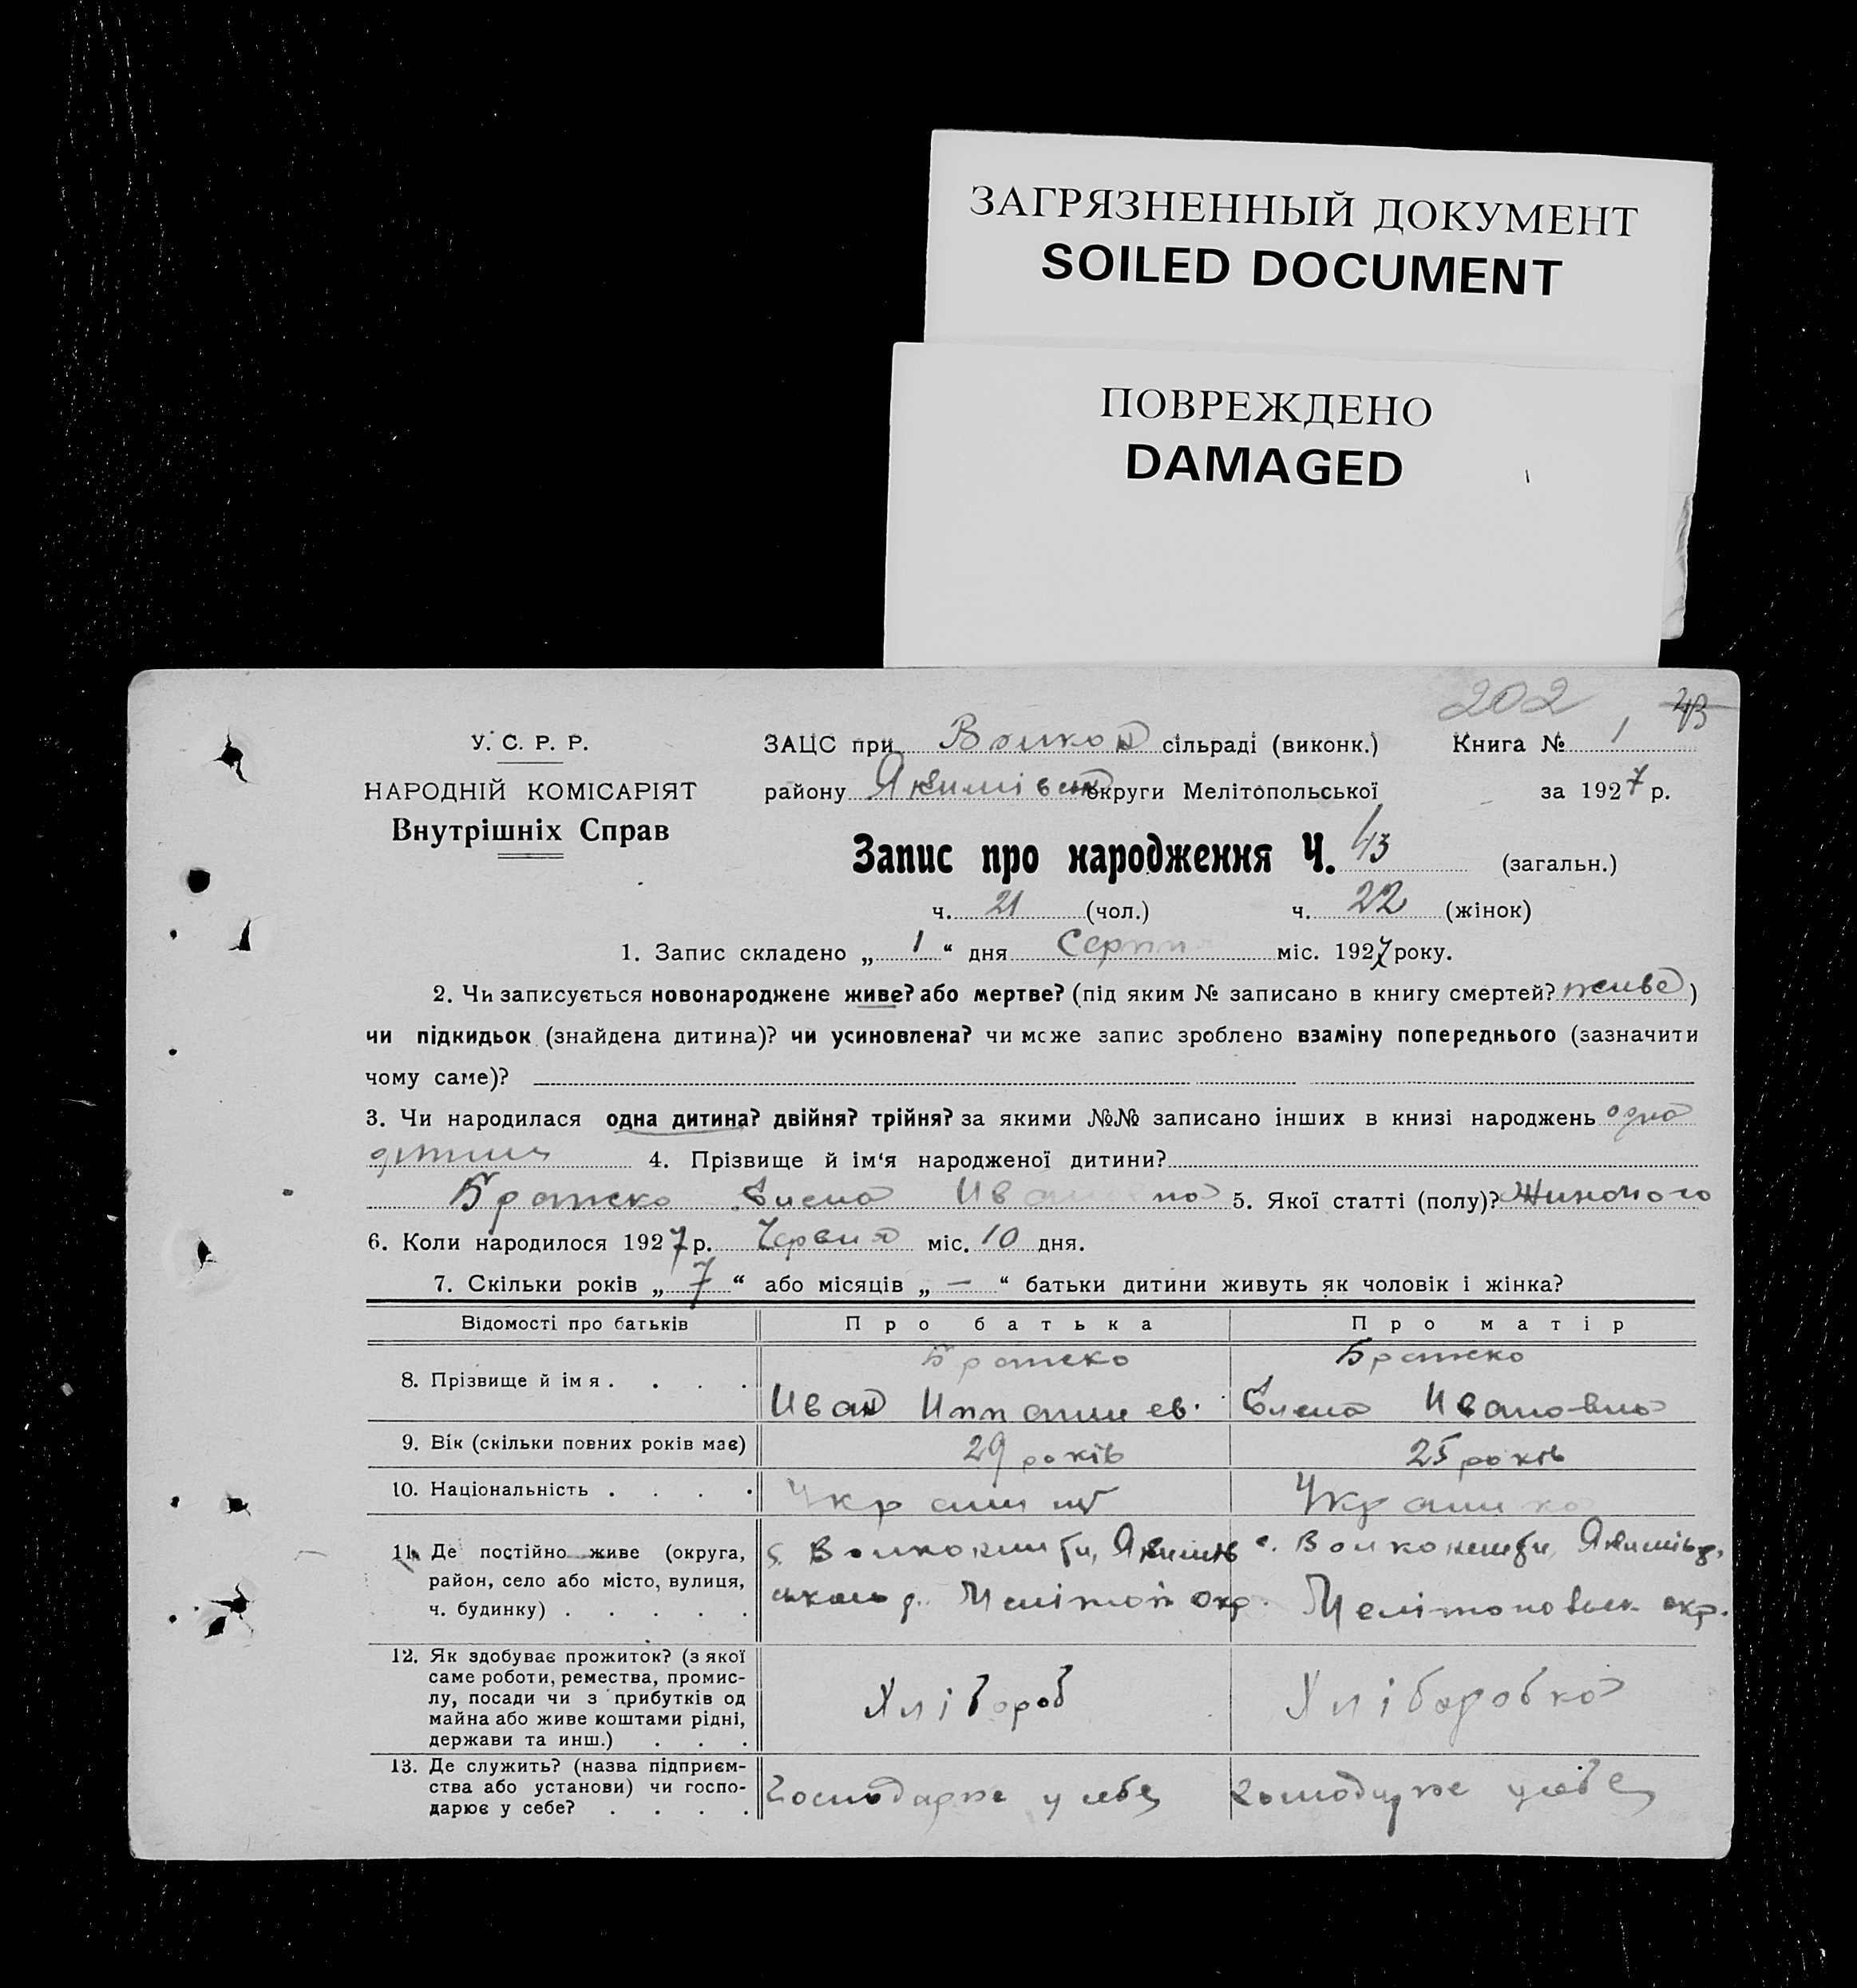 ЗАГРЯЗНЕННЫЙ ДОКУМЕНТ
SOILED DOCUMENT
ПОВРЕЖДЕНО
DAMAGED
202 43
У. С. Р. Р.
НАРОДНІЙ КОМІСАРІЯТ
Внутрішніх Справ
ЗАЦС при Волкон сільраді (виконк.) Книга № 1
району Якимівськ округи Мелітопольської за 1927 р.
Запис про народження Ч. 43 (загальн.)
ч. 21 (чол.) ч. 22 (жінок)
1. Запис складено „ 1 “ дня Серпня міс. 1927 року.
2. Чи записується новонароджене живе? або мертве? (під яким № записано в книгу смертей? живе)
чи підкидьок (знайдена дитина)? чи усиновлена? чи може запис зроблено взаміну попереднього (зазначити
чому саме)?
3. Чи народилася одна дитина? двійня? трійня? за якими №№ записано інших в книзі народжень одна
дитина 4. Прізвище й ім‘я народженої дитини?
Братско Елена Ивановна 5. Якої статті (полу)? Жиночого
6. Коли народилося 1927 р. Червня міс. 10 дня.
7. Скільки років „ 7 “ або місяців „ — “ батьки дитини живуть як чоловік і жінка?
Відомості про батьків Про батька Про матір
8. Прізвище й імя . . . . Братско Братско
Иван Елена Ивановна
9. Вік (скільки повних років має) 29 років 25 років
10. Національність . . . . Українц Українка
11. Де постійно живе (округа,
район, село або місто, вулиця,
ч. будинку) . . . . .
с. Якимів
ським р. Мелітоп окр.
с. Якимів р.
Мелітопольськ окр.
12. Як здобуває прожиток? (з якої
саме роботи, ремества, промис-
лу, посади чи з прибутків од
майна або живе коштами рідні,
держави та инш.) . . .
Хлібороб Хліборобка
13. Де служить? (назва підприєм-
ства або установи) чи госпо-
дарює у себе? . . . .
Господарює у себе Господарює у себе